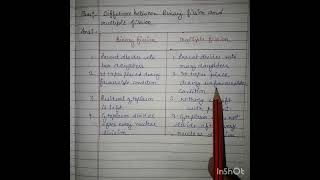 Ques:- Difference between Binary fission and
multiple fission.
Ans:-
Binary fission
multiple fission
1. Parent divides into
two daughters
1. Parent divides into
many daughters
2. It takes place during
favourable
condition
2. It takes place
during unfavourable
condition
3. Residual cytoplasm
is left
3. Nothing is left
with parent
4. Cytoplasm divides
after every nuclear
division
4. Cytoplasm does not
divide after every
nuclear division
Made with
InShOt